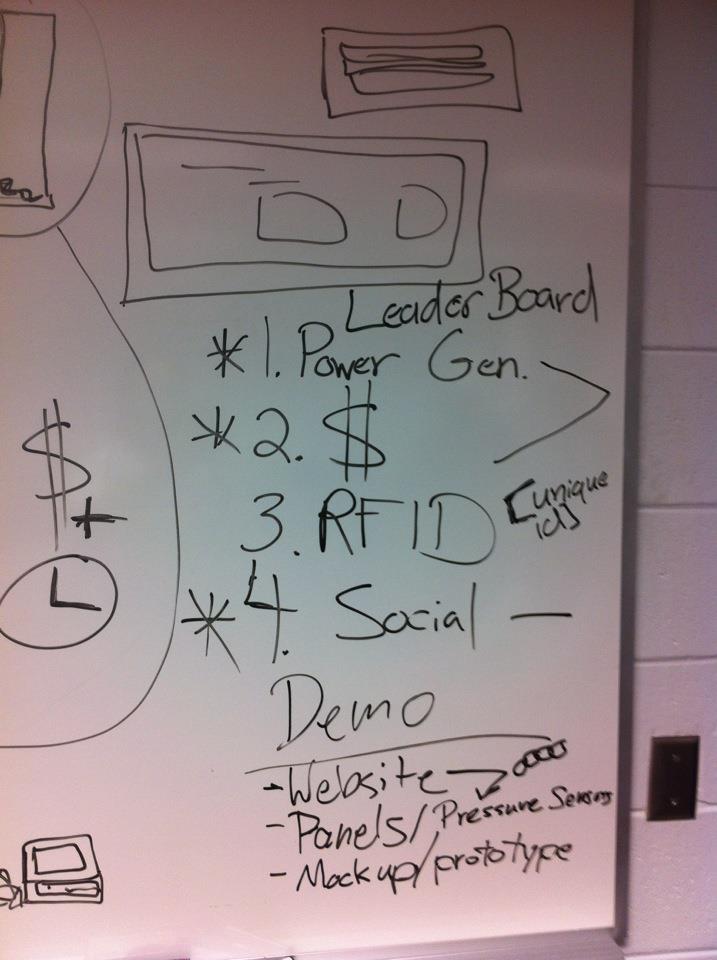 Leader Board
*1. Power Gen.
*2. $
3. RFID [unique
ids]
*4. Social —
$
+
Demo
-Website
-Panels/Pressure Sensors
-Mockup/prototype